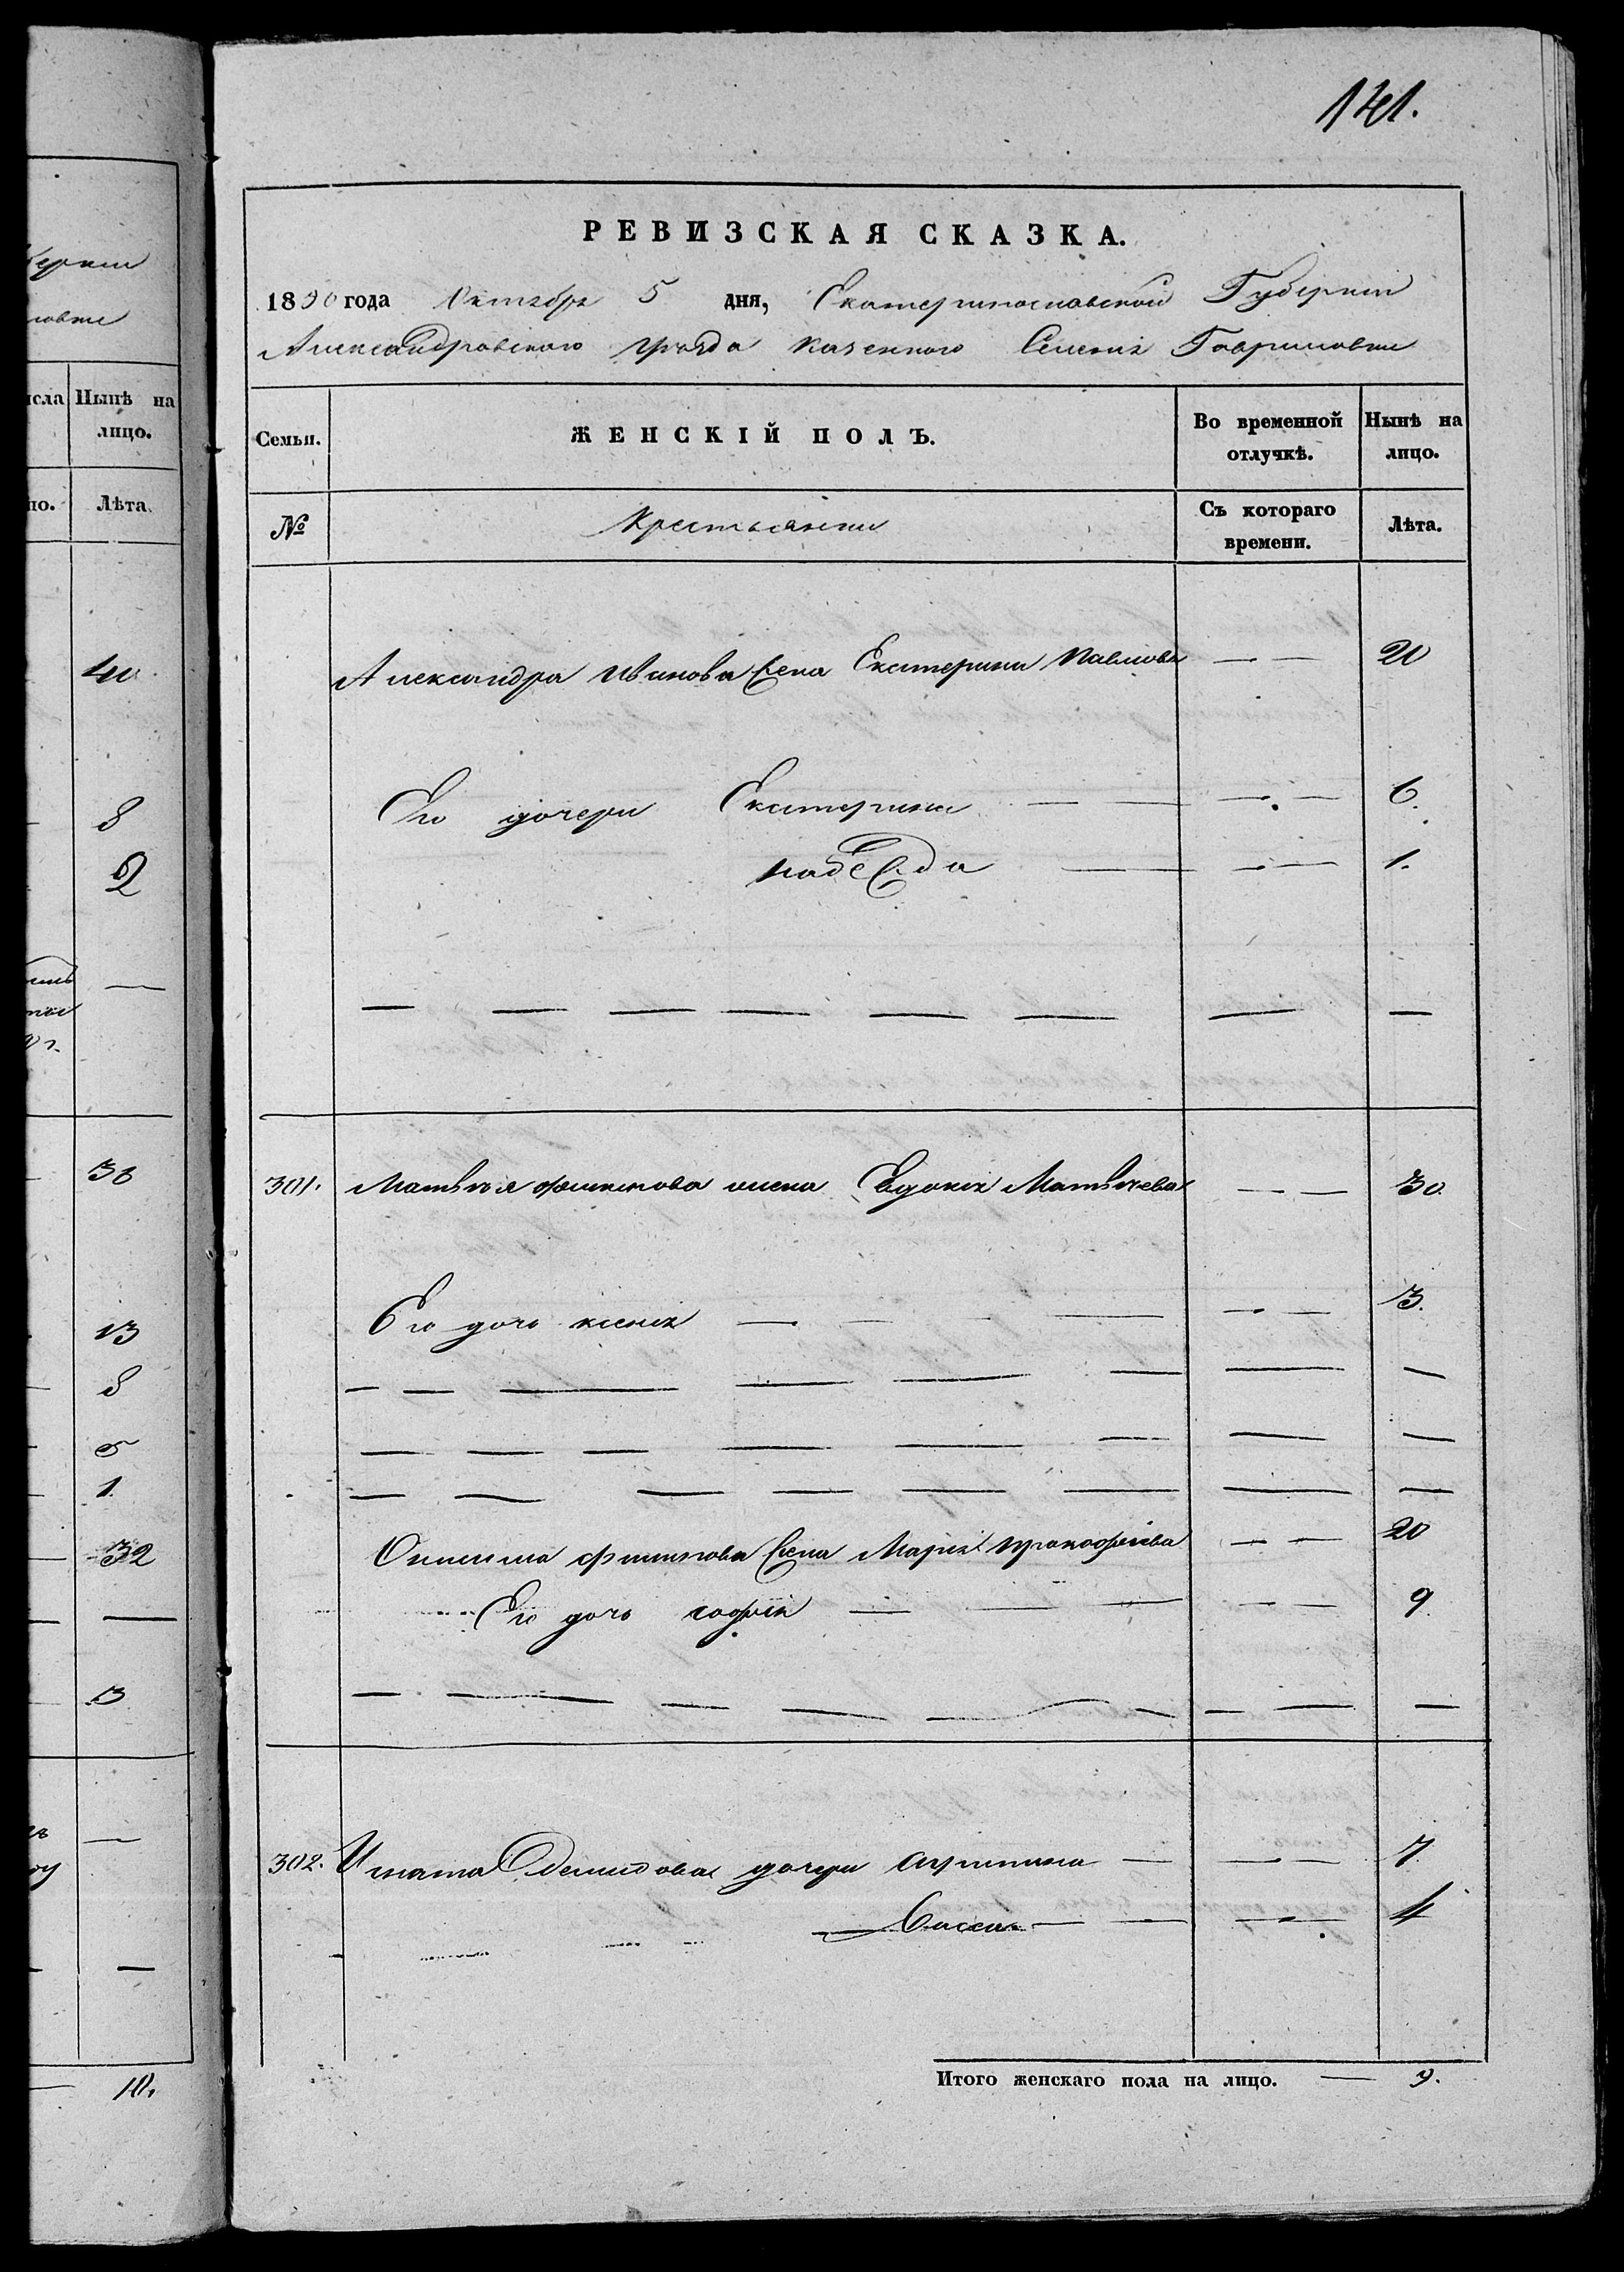 141.
РЕВИЗСКАЯ СКАЗКА.
1850 года Октября 5 дня, Екатеринославской Губернии
Александровского уѣзда казенного Селенія Гавриловки
Семьи. ЖЕНСКІЙ ПОЛЪ. Во временной отлучкѣ. Нынѣ на лицо.
№ Крестьянки Съ котораго времени. Лѣта.
Александра Иванова Жена Екатерина Павлова — — 20
Его дочери Екатерина — — — — 6.
Надежда — — — 1.
301. Матвѣя Филипова жена Евдокія Матвѣева — — 30.
Его дочь Ксенія — — — — — 3.
Онисима Филипова Жена Марія Прокофіева — — 20
Его дочь Софія — — — — — 9.
302. Игната Демидова дочери — — — 7.
— — — — 4
Итого женскаго пола на лицо. — 9.
исла Нынѣ на лицо.
но. Лѣта.
40.
8
2
—
38
13
8
5
1.
32
—
13
—
—
10.